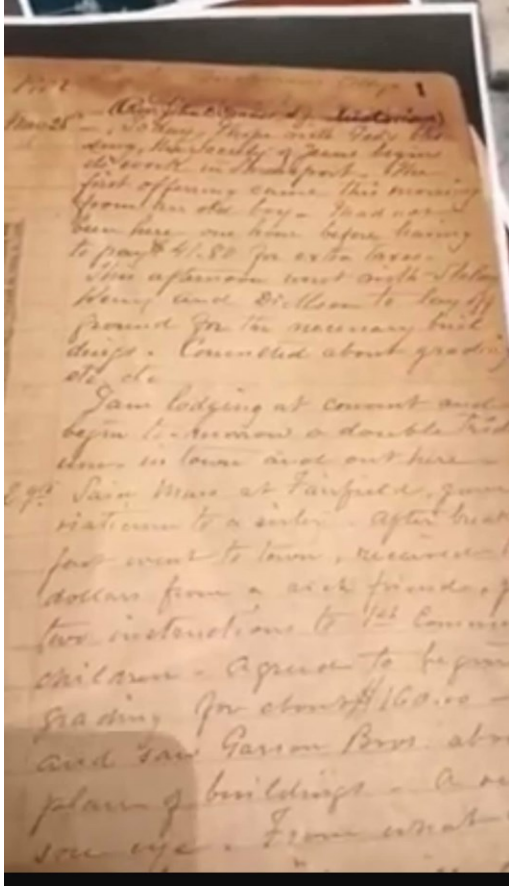 1
Nov 25
- Today, I hope with God's bles
sing, the Society of Jesus begins
its work in Shreveport. The
first offering came this morning
from an old boy. I had not
been here one hour before having
to pay $41.80 for extra taxes.
This afternoon went with
and Dillon to lay off
ground for the necessary buil
dings. Consulted about grading
etc. etc.
I am lodging at convent and
begin to-morrow a double Trid
uum in town and out here
Said Mass at Fairfield, gave
viaticum to a sister. After break
fast went to town, received
dollars from a rich friend,
two instructions to 1st Commu
children. Agreed to begin
grading for about $160.00 -
and saw Garson Bros. abo
plan of buildings. A
son eye. From what